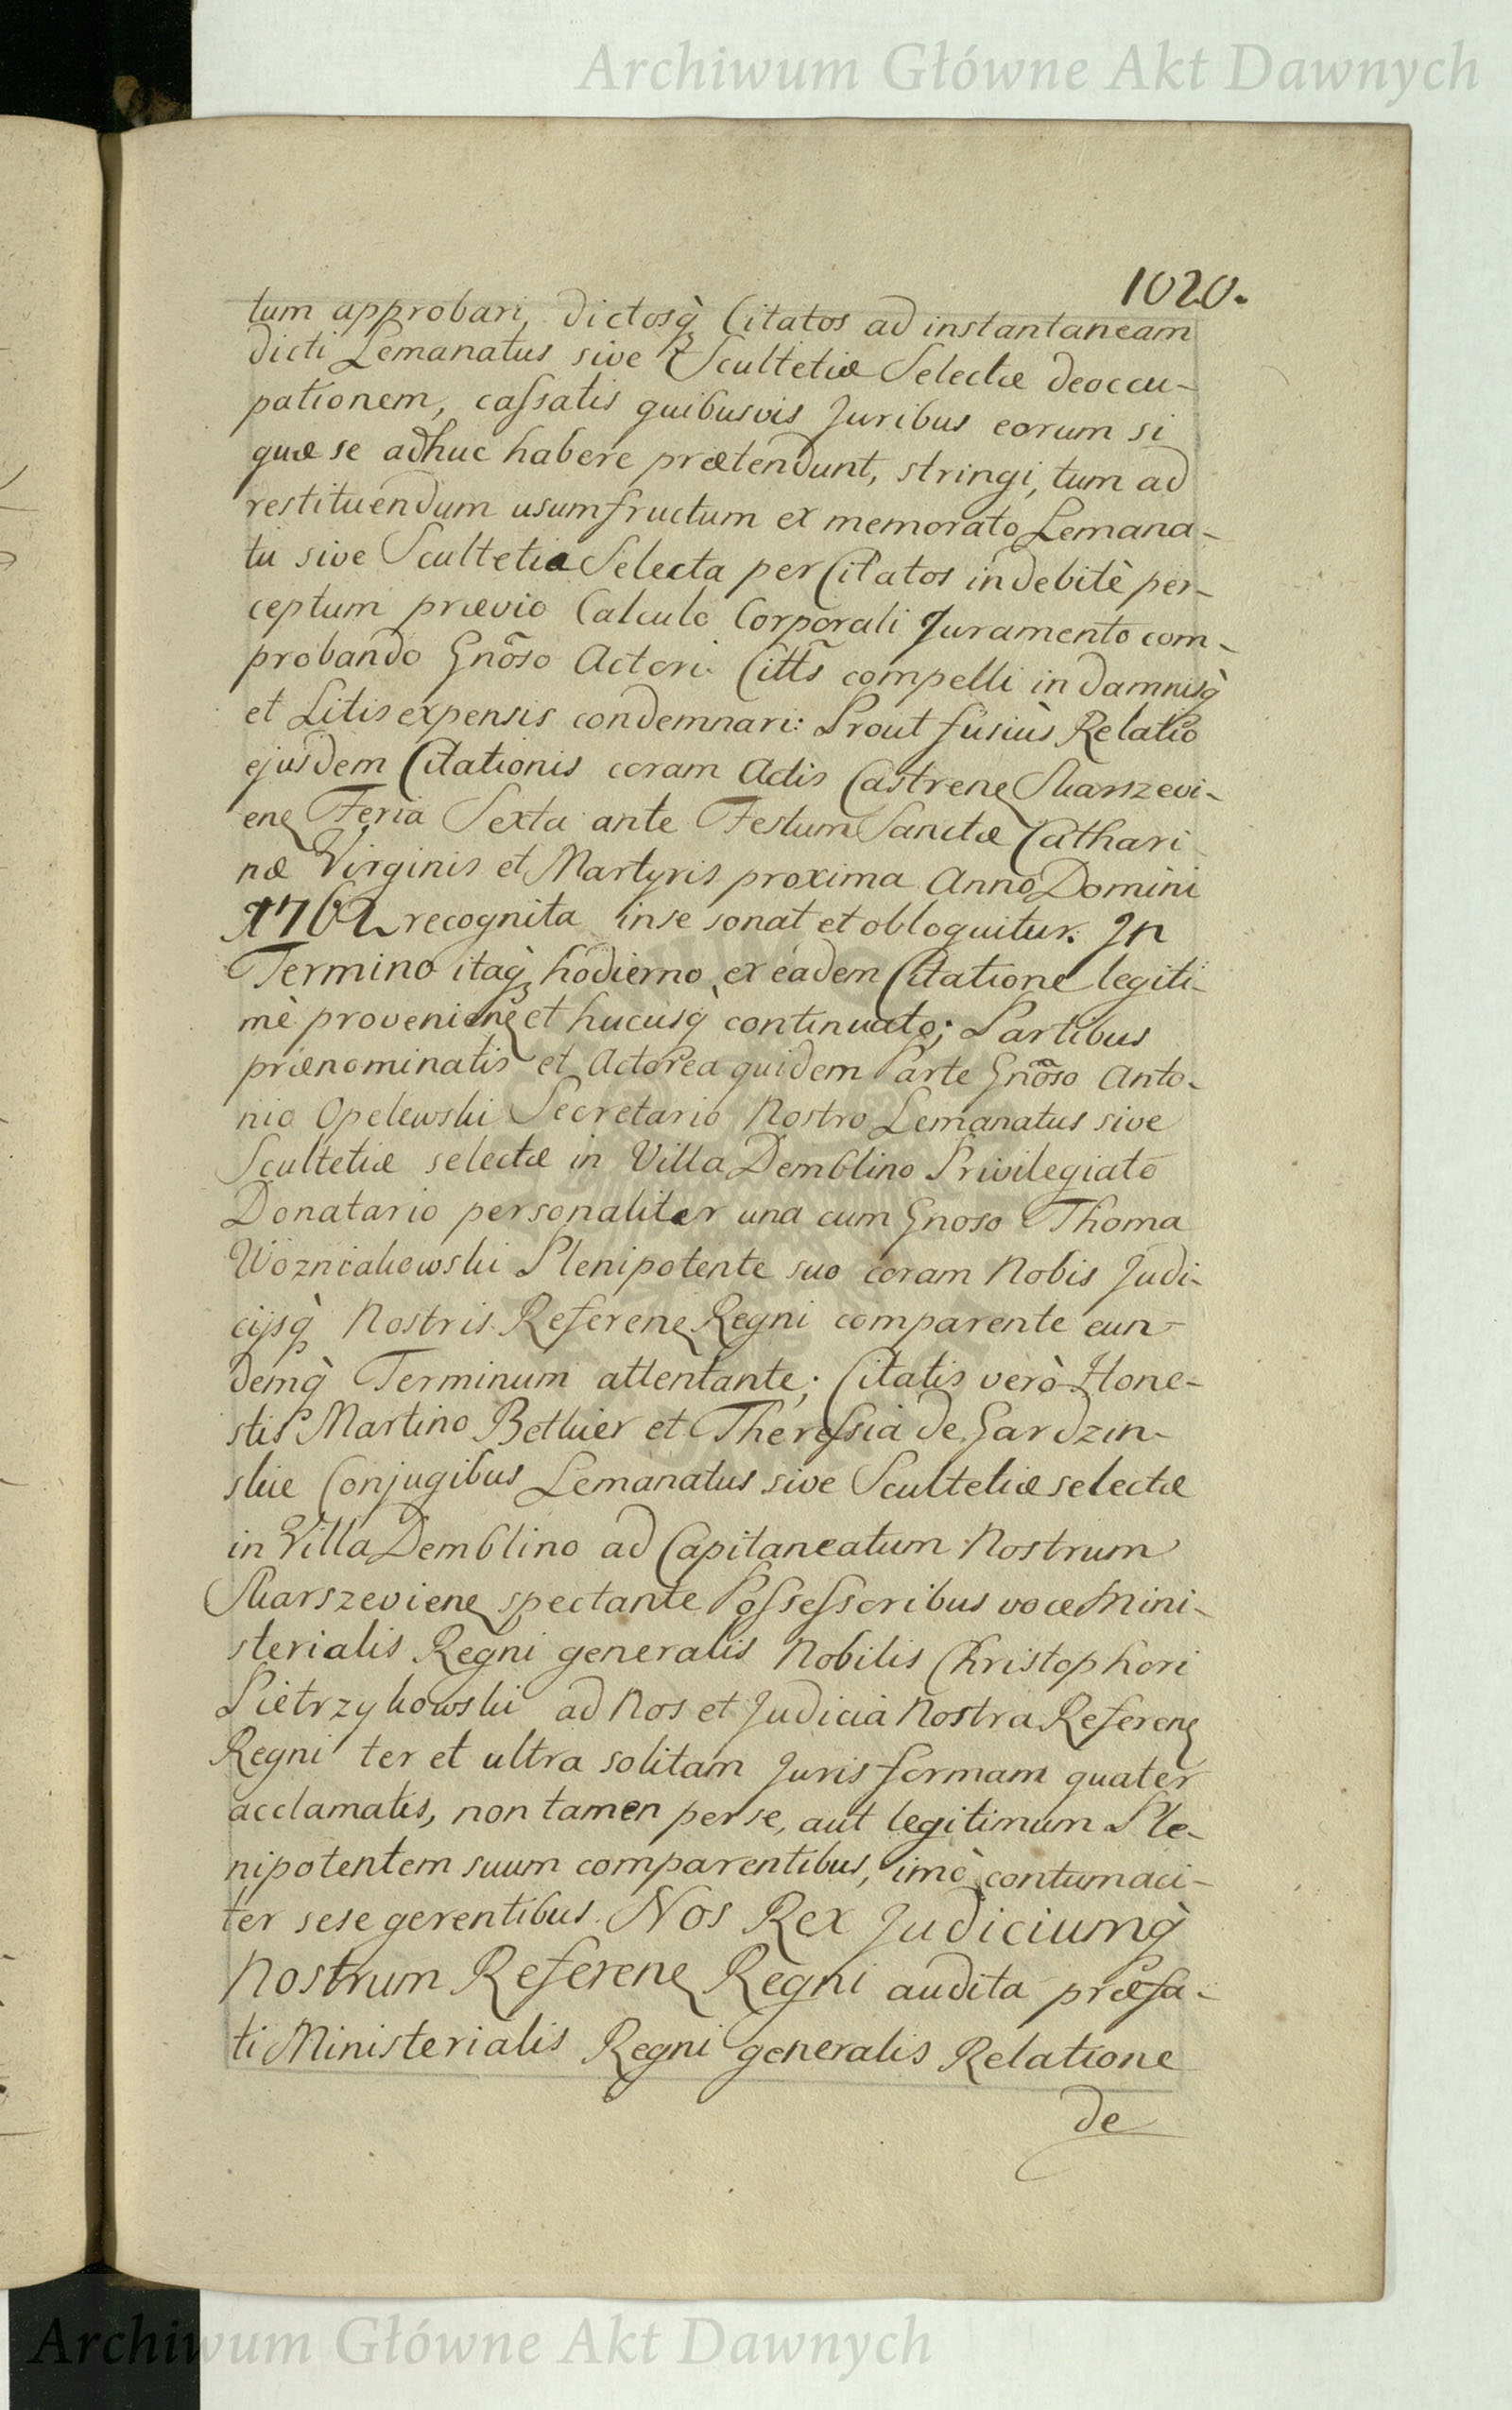 Archiwum Główne Akt Dawnych
1020.
tum approbari, dictosq́ꝫ Citatos ad instantaneam
dicti Lemanatus sive Scultetiæ Selectæ deoccu-
pationem, caſsatis quibusvis Juribus eorum si
quæ se adhuc habere prætendunt, stringi, tum ad
restituendum usumfructum ex memorato Lemana-
tu sive Scultetia Selecta per Citatos indebitè per-
ceptum prævio Calculo Corporali Juramento com-
probando Gnõso Actori Citt̃s compelli in damnisq̀
et Litis expensis condemnari: Prout fusiùs Relatio
ejusdem Citationis coram Actis Castreneꝫ Skarszevi-
eneꝫ Feria Sexta ante Festum Sanctæ Cathari-
næ Virginis et Martyris proxima Anno Domini
1762 recognita in se sonat et obloquitur. In
Termino itaq̀ꝫ hodierno ex eadem Citatione legiti-
mè provenieneꝫ et hucusq̀ continuato; Partibus
prænominatis et Actorea quidem Parte Gnõso Anto-
nio Opelewski Secretario Nostro Lemanatus sive
Scultetiæ selectæ in Villa Demblino Privilegiato
Donatario personaliter una cum Gnoso Thoma
Wozniakowski Plenipotente suo coram Nobis Judi-
cijsq̀ Nostris Refereneꝫ Regni comparente eun-
demq̀ Terminum attentante; Citatis verò Hone-
stis Martino Betkier et Thereſsia de Gardzin-
skie Conjugibus Lemanatus sive Scultetiæ selectæ
in Villa Demblino ad Capitaneatum Nostrum
Skarszevieneꝫ spectante Poſseſsoribus voce Mini-
sterialis Regni generalis Nobilis Christophori
Pietrzykowski ad Nos et Judicia Nostra Refereneꝫ
Regni ter et ultra solitam Juris formam quater
acclamatis, non tamen per se, aut legitimum Ple-
nipotentem suum comparentibus, imò contumaci-
ter sese gerentibus. Nos Rex Judiciumq̀
Nostrum Refereneꝫ Regni audita præfa-
ti Ministerialis Regni generalis Relatione
de
Archiwum Główne Akt Dawnych